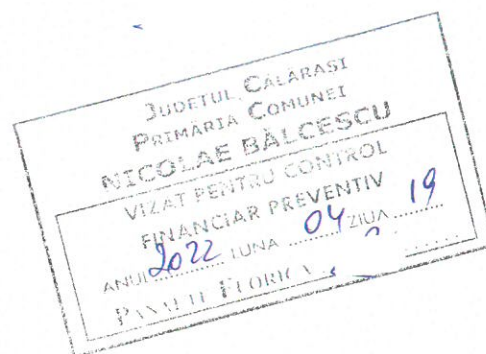 JUDETUL CĂLĂRAȘI
PRIMĂRIA COMUNEI
NICOLAE BĂLCESCU
VIZAT PENTRU CONTROL
FINANCIAR PREVENTIV
ANUL 2022 LUNA 04 ZIUA 19
FLORICA